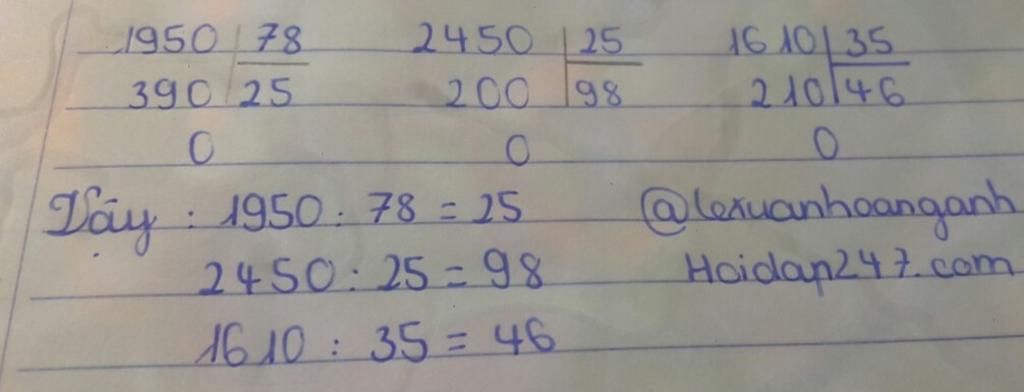 1950 78 2450 25 1610 35
390 25 200 98 210 46
0 0 0
Vậy : 1950 : 78 = 25 @lexuanhoanganh
2450 : 25 = 98 Hoidap247.com
1610 : 35 = 46